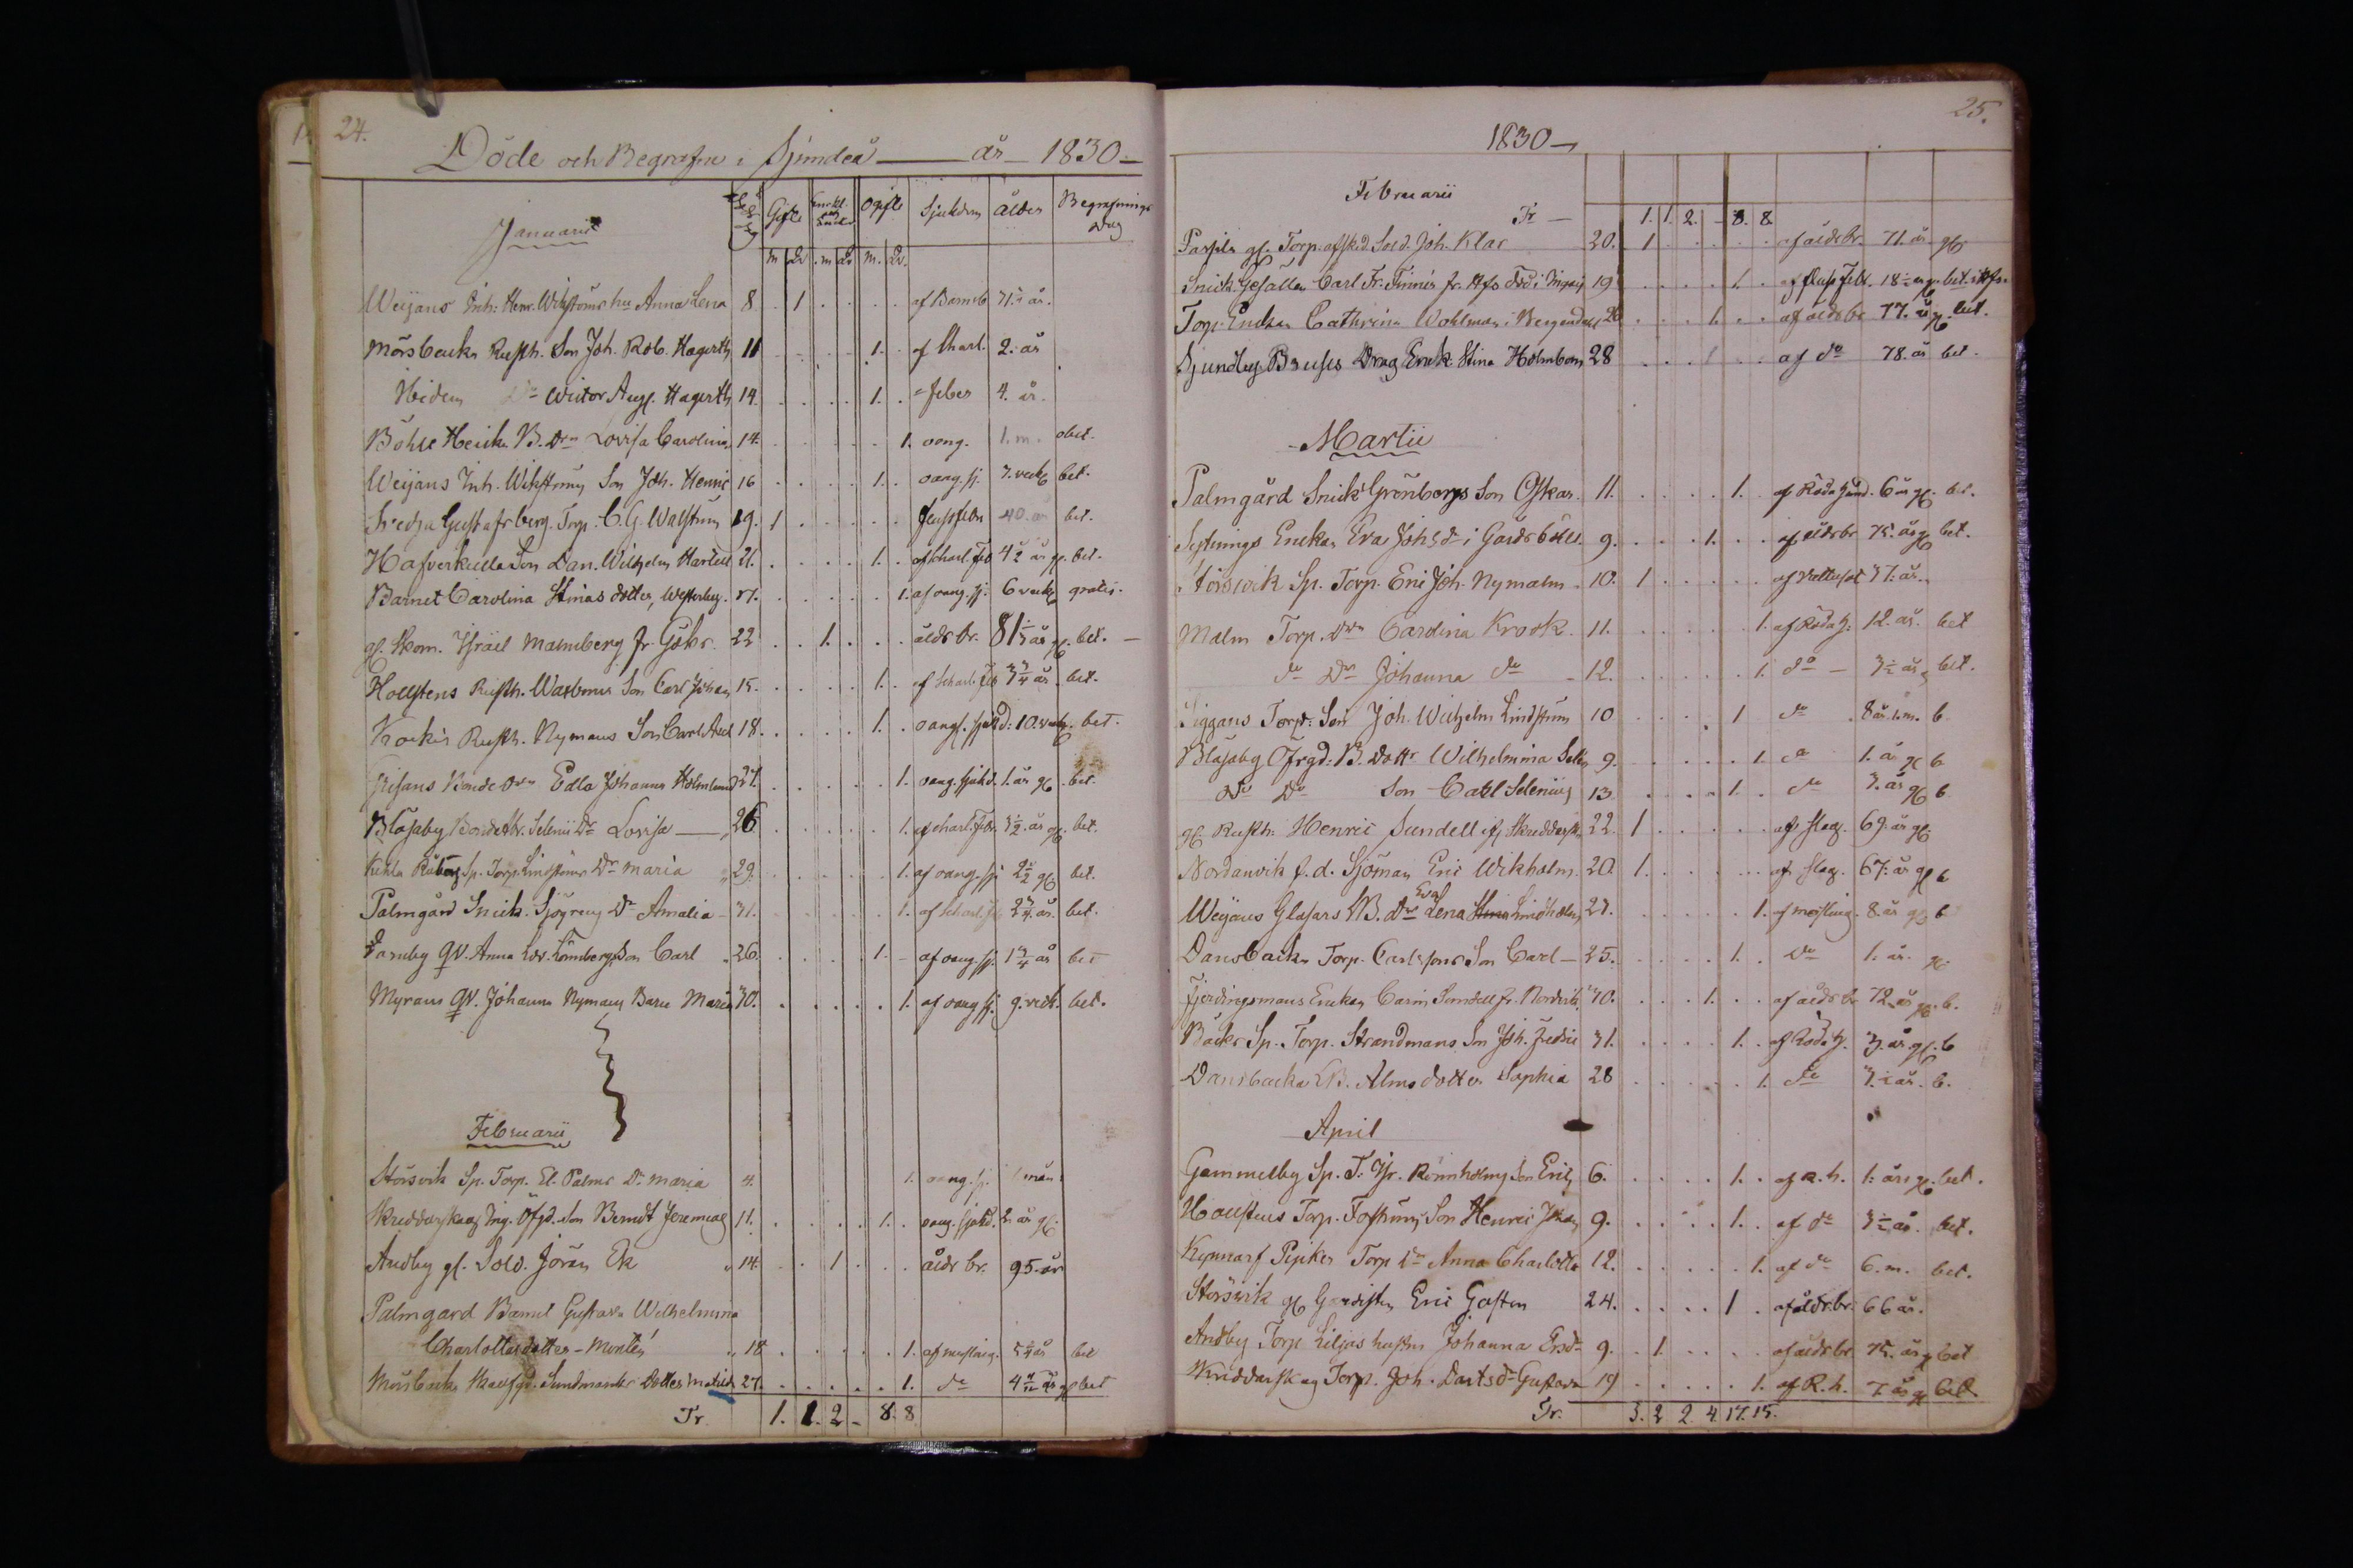 24.
Döde och Begrafne i Sjundeå — år — 1830 —
Januarii Gifte Enkl. och Enkor Ogifte Sjukdom ålder Begrafnings dag
m qv m qv m. qv.
Weijans Inh. Henr. Wikströms hu Anna Lena 8 . 1 . . . . af Barnsb 31 ½ år.
Mörsbacka Rusth. Son Joh. Rob. Hagerth 11 . . . . 1. . af Scharl. 2. år
Ibidem Do Wictor Aug. Hagerth 14. . . . . 1. . feber 4. år.
Böhle Henrik. B. Dr Lovisa Carolina 14. . . . . . 1. oang. 1. m. obet.
Weijans Inh. Wikström Son Joh. Henric 16 . . . . 1. . oang. sj. 3. veck bet.
Gustafsberg. Torp. C. G. Wallström 19. 1 . . . . . flussfeber 40. år bet.
Hafverkulla Son Dan. Wilhelm 21. . . . . 1. . af Scharl. Feb 4 ½ år gl. bet.
Barnet Carolina Stinas dotter, Westerby. 27. . . . . . 1. af oang. sj. 6 veck gratis.
gl. Skom. Israel Malmberg fr. 22 . . 1. . . . åldr br. 81 ½ år gl. bet. —
Hollstens Rusth. Son Carl Johan 15. . . . . 1. . af Scharl. Feb 3 ¾ år. bet.
Rusth. Nymans Son Carl Axel 18. . . . . 1. . oang. sjukd: 10. veck. bet.
Grisans Bonde Dr Edla Johanna Holmlund 31. . . . . . 1. oang. sjukd. 1. år gl. bet.
Blåsaby Bonde Selenii Dr Lovisa — 26 . . . . . 1. af Scharl. Feb. 3 ½ år gl. bet.
Sp. Torp. Lindströms Dr Maria 29. . . . . . 1. af oang. sj. 2 ½ gl. bet.
Palmgård Snick. Sjögrens Dr Amalia 31. . . . . . 1. af Scharl. 2 ¾ år. bet.
Qv. Anna Lov. Lönnbergs Son Carl 26. . . . . 1. — af oang. sj. 1 ¾ år bet
Myrans Qv. Johanna Nymans Barn Maria 30. . . . . . 1. af oang sj. 9. veck. bet.
Februarii
Störsvik Sp. Torp. El. Palms Dr Maria 4. 1. oang. sj. 1 mån.
Skreddarskog Ing. Öfgd. Son Berndt Jeremias 11. . . . . 1. . oang. sjukd. 2. år gl.
Andby gl. Sold. Jöran Ek 14. . . 1 . . . åldr br. 95. år
Palmgard Barnet Gustava Wilhelmina
Charlottasdotter — Montén 18 . . . . . 1. af messling. 5 ¼ år bet
Mörsbacka Sundmarks Dotter Mathild 27. . . . . . 1. do 4 år gl bet
Tr. 1. 1. 2 — 8. 8
25.
1830 —
Februarii
Tr — 1. 1. 2. — 8. 8.
gl. Torp. afsked. Sold. Joh. Klar 20. 1 . . . . . af åldr br. 71. år gl.
Snick. Gesällen Carl Fr. 19 . . . . 1. . af fluss Feb.
Torp. Enckan Cathrina Wohlman i Bergendahl 26 . . . 1. . . af åldr br 77. år gl. bet.
Sjundby Bruks Dräg Enk. Stina Holmbom 28 . . . 1 . . af do 78. år bet.
Martii
Palmgård Snick. Grönbergs Son Oskar. 11. . . . . 1. . af Röda Hund. 6 år gl. bet.
Sytnings Enckan Eva Johsdr i Gårdsböle. 9. . . . 1. . . af åldr br 75. år gl bet.
Störsvik Sp. Torp. Eric Joh. Nymalm. 10. 1 . . . . . af Vattusot 37. år.
Malm Torp. Drn Carolina Krook. 11. . . . . . 1. af Röda H. 12. år. bet
do Dr Johanna do 12. . . . . . 1. do — 3 ½ år. bet.
Siggans Torp. Son Joh. Wilhelm Lindström 10 . . . . 1 do . 8 år. 1. m. b
Blåsaby Öfrgd. B. Dottr Wilhelmina 9. . . . . . 1. do 1. år gl b
Do Do Son Carl Selenius 13. . . . . 1. . do 3. år gl b
gl. Rusth. Henric Sundell ifr. Skreddarsk 22. 1 . . . . . af slag. 69. år gl.
Nordanvik f. d. Sjöman Eric Wikholm. 20. 1. . . . . . af slag. 67. år gl b
Weijans Glasars B. Dr Eva Lena Stina Lindholm 27. . . . . . 1. af messling. 8. år gl b
Dansbacka Torp. Carlssons Son Carl — 25. . . . . 1. . Do 1. år. gl.
Fjerdingsmans Enckan Carin Sundell fr. Nordvik 30. . . . 1. . . af åldr br 72. år gl. b.
Bäcks Sp. Torp. Strandmans Son Joh. Fredric 31. . . . . 1. . af Röda H. 3. år gl. b
Dansbacka B. Alms dotter Sophia 28 . . . . . 1. do 3. ½ år. b.
April
Gammelby Sp. T. Rönnholms Son Eric 6. . . . . 1. . af R. h. 1. år gl. bet.
Hollstens Torp. Forströms Son Henric Johan 9. . . . . 1. . af do 3 ½ år. bet.
Torp Dr Anna Charlotta 12. . . . . . 1. af do 6. m. bet.
Störsvik gl Eric Gosten 24. . . . . 1 . af åldr. br. 66 år.
Andby Torp. Liljas hustru Johanna Ersdr 9. . 1. . . . . af åldr br 75. år gl bet
Skreddarskog Torp. Joh. Gustava 19 . . . . . 1. af R. h. 7. år gl bet.
Tr. 5. 2 2. 4. 17. 15.